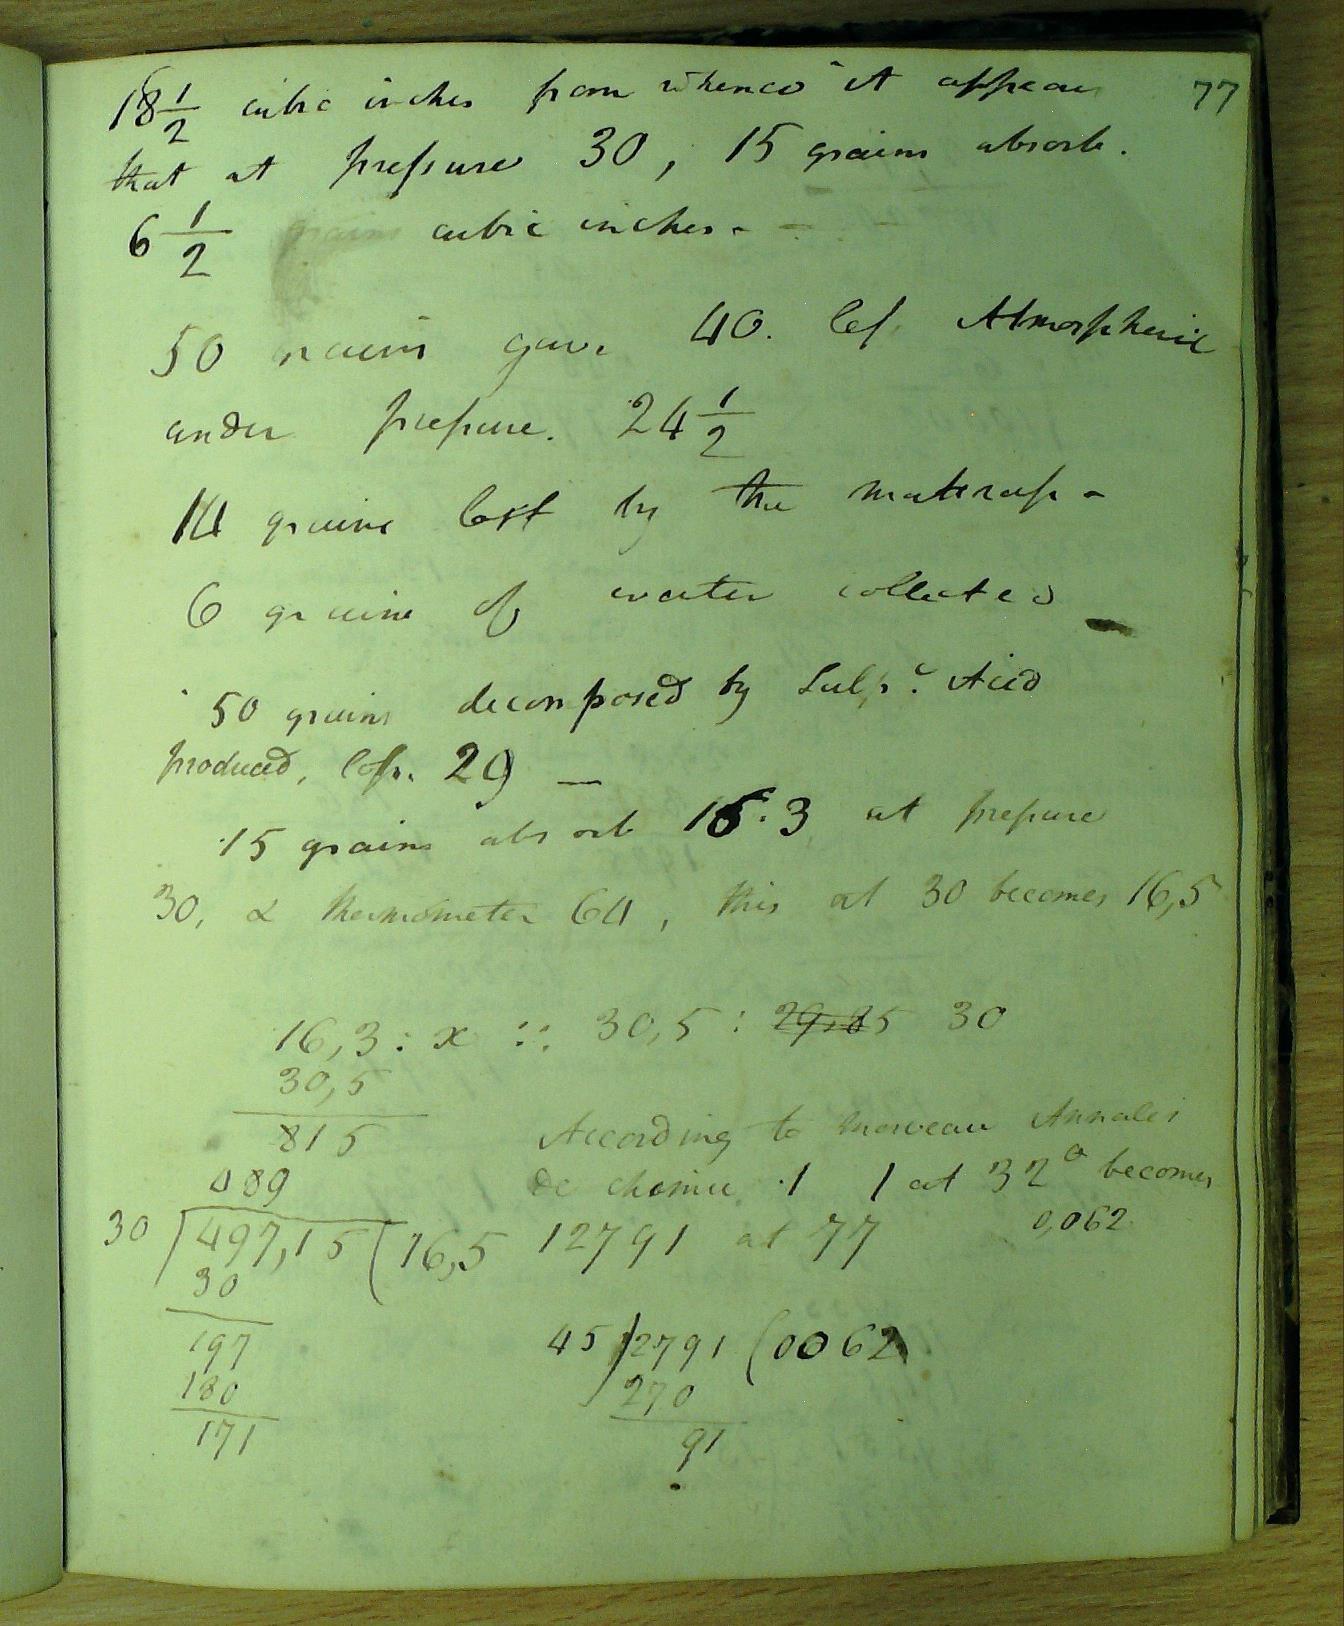 77
18 1/2 cubic inches from whence it appears
that at pressure 30, 15 grains absorb.
6 1/2 grains cubic inches -
50 grains gave 40. less Atmospheric
under pressure. 24 1/2
14 grains lost by the materials -
6 grains of water collected
50 grains decomposed by Sulp.c Acid
produced, loss. 29 —
15 grains absorb 16.3 at pressure
30, & thermometer 64, this at 30 becomes 16,5
16,3 : x :: 30,5 : 29,85 30
30,5
815
489
According to Morveau Annales
de chimie .1 1 at 32° becomes
30 497,15 ( 16,5 12791 at 77 0,062
30
197
180
171
45 ) 2791 ( 0062
270
91